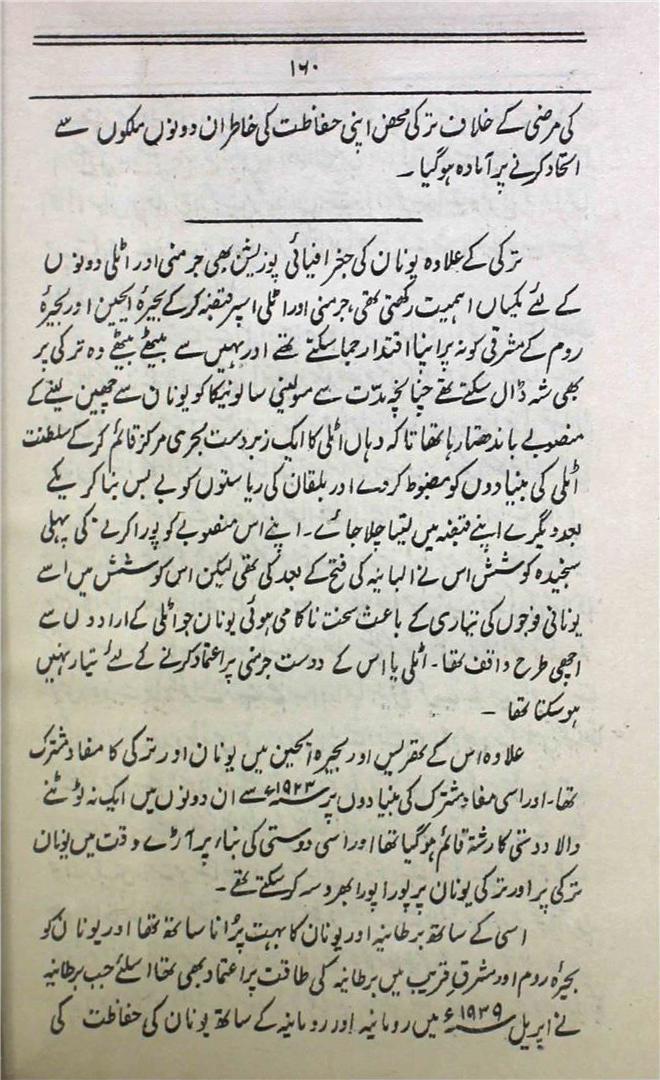 ۱۶۰
کی مرضی کے خلاف ترکی محض اپنی حفاظت کی خاطر ان دونوں ملکوں سے
اتحاد کرنے پر آمادہ ہوگیا ۔
ترکی کے علاوہ یونان کی جغرافیائی پوزیشن بھی جرمنی اور اٹلی دونوں
کے لئے یکساں اہمیت رکھتی تھی، جرمنی اور اٹلی اسپر قبضہ کر کے بحیرۂ ایجین اور بحیرۂ
روم کے مشرقی کونہ پر اپنا اقتدار جما سکتے تھے اور یہیں سے بیٹھے بیٹھے وہ ترکی پر
بھی شہ ڈال سکتے تھے چنانچہ مدّت سے مولینی سالونیکا کو یونان سے چھین لینے کے
منصوبے باندھتا رہا تھا تاکہ وہاں اٹلی کا ایک زبردست بحری مرکز قائم کر کے سلطنت
اٹلی کی بنیادوں کو مضبوط کر دے اور بلقان کی ریاستوں کو بے بس بنا کر یکے
بعد دیگرے اپنے قبضہ میں لیتا چلا جائے ۔ اپنے اس منصوبے کو پورا کرنے کی پہلی
سنجیدہ کوشش اس نے البانیہ کی فتح کے بعد کی تھی لیکن اس کوشش میں اسے
یونانی فوجوں کی تیاری کے باعث سخت ناکامی ہوئی یونان جو اٹلی کے ارادوں سے
اچھی طرح واقف تھا ۔ اٹلی یا اس کے دوست جرمنی پر اعتماد کرنے کے لئے تیار نہیں
ہو سکتا تھا ۔
علاوہ اس کے تھریس اور بحیرہ ایجین میں یونان اور ترکی کا مفاد مشترک
تھا ۔ اور اسی مفاد مشترک کی بنیادوں پر ۱۹۲۳ء سے ان دونوں میں ایک نہ ٹوٹنے
والا دوستی کا رشتہ قائم ہو گیا تھا اور اسی دوستی کی بناء پر آڑے وقت میں یونان
ترکی پر اور ترکی یونان پر پورا پورا بھروسہ کر سکتے تھے ۔
اسی کے ساتھ برطانیہ اور یونان کا بہت پُرانا ساتھ تھا اور یونان کو
بحیرۂ روم اور مشرقِ قریب میں برطانیہ کی طاقت پر اعتماد بھی تھا اسلئے جب برطانیہ
نے اپریل ۱۹۳۹ء میں رومانیہ اور رومانیہ کے ساتھ یونان کی حفاظت کی